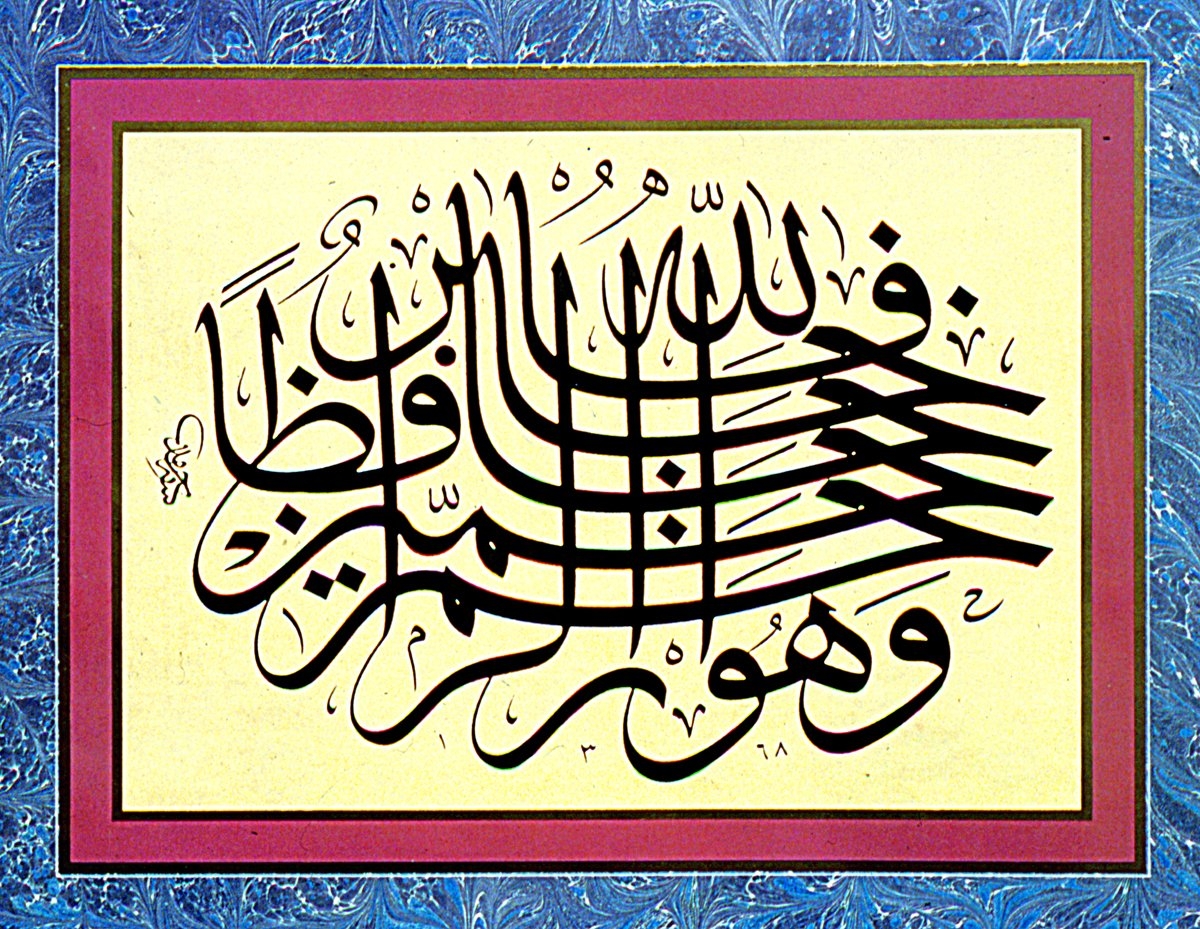 فَاللّٰهُ خَيْرٌ حَافِظًا
وَهُوَ اَرْحَمُ الرَّاحِمِينَ
١٣٦٨